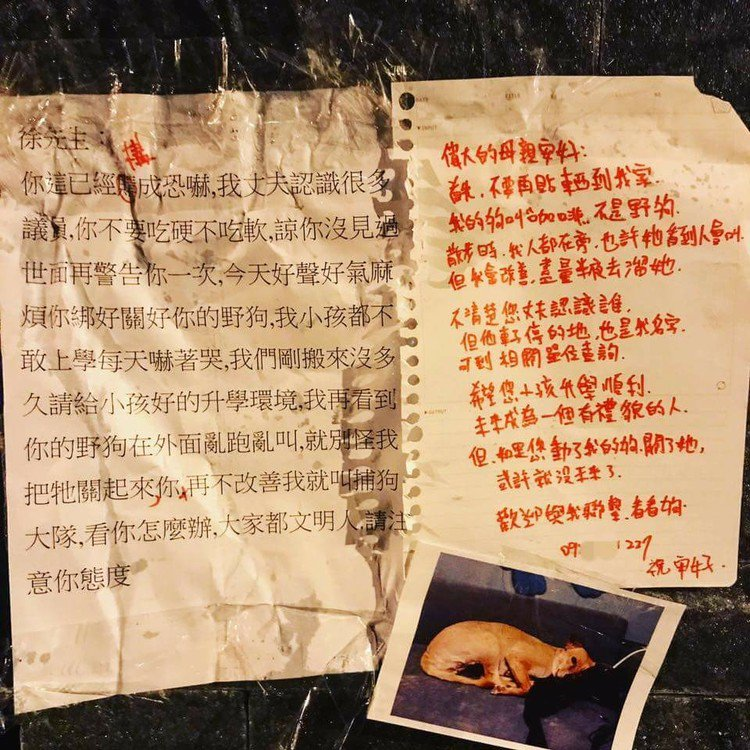 徐先生：
你這已經構成恐嚇,我丈夫認識很多
議員,你不要吃硬不吃軟,諒你沒見過
世面再警告你一次,今天好聲好氣麻
煩你綁好關好你的野狗,我小孩都不
敢上學每天嚇著哭,我們剛搬來沒多
久請給小孩好的升學環境,我再看到
你的野狗在外面亂跑亂叫,就別怪我
把牠關起來你,再不改善我就叫捕狗
大隊,看你怎麼辦,大家都文明人,請注
意你態度
偉大的母親
不要再貼東西到我家.
我的狗叫咖哩,不是野狗.
散步時,我人都在旁,也許她看到人會叫.
但我會改善,盡量半夜去溜她.
不清楚您丈夫認識誰.
但他車子停的地,也是我名字.
可到相關單位查詢.
希望您小孩升學順利.
未來成為一個有禮貌的人.
但,如果您動了我的狗,關了她,
或許就沒未來了.
歡迎與我聯繫,看看狗.
09 1227
祝